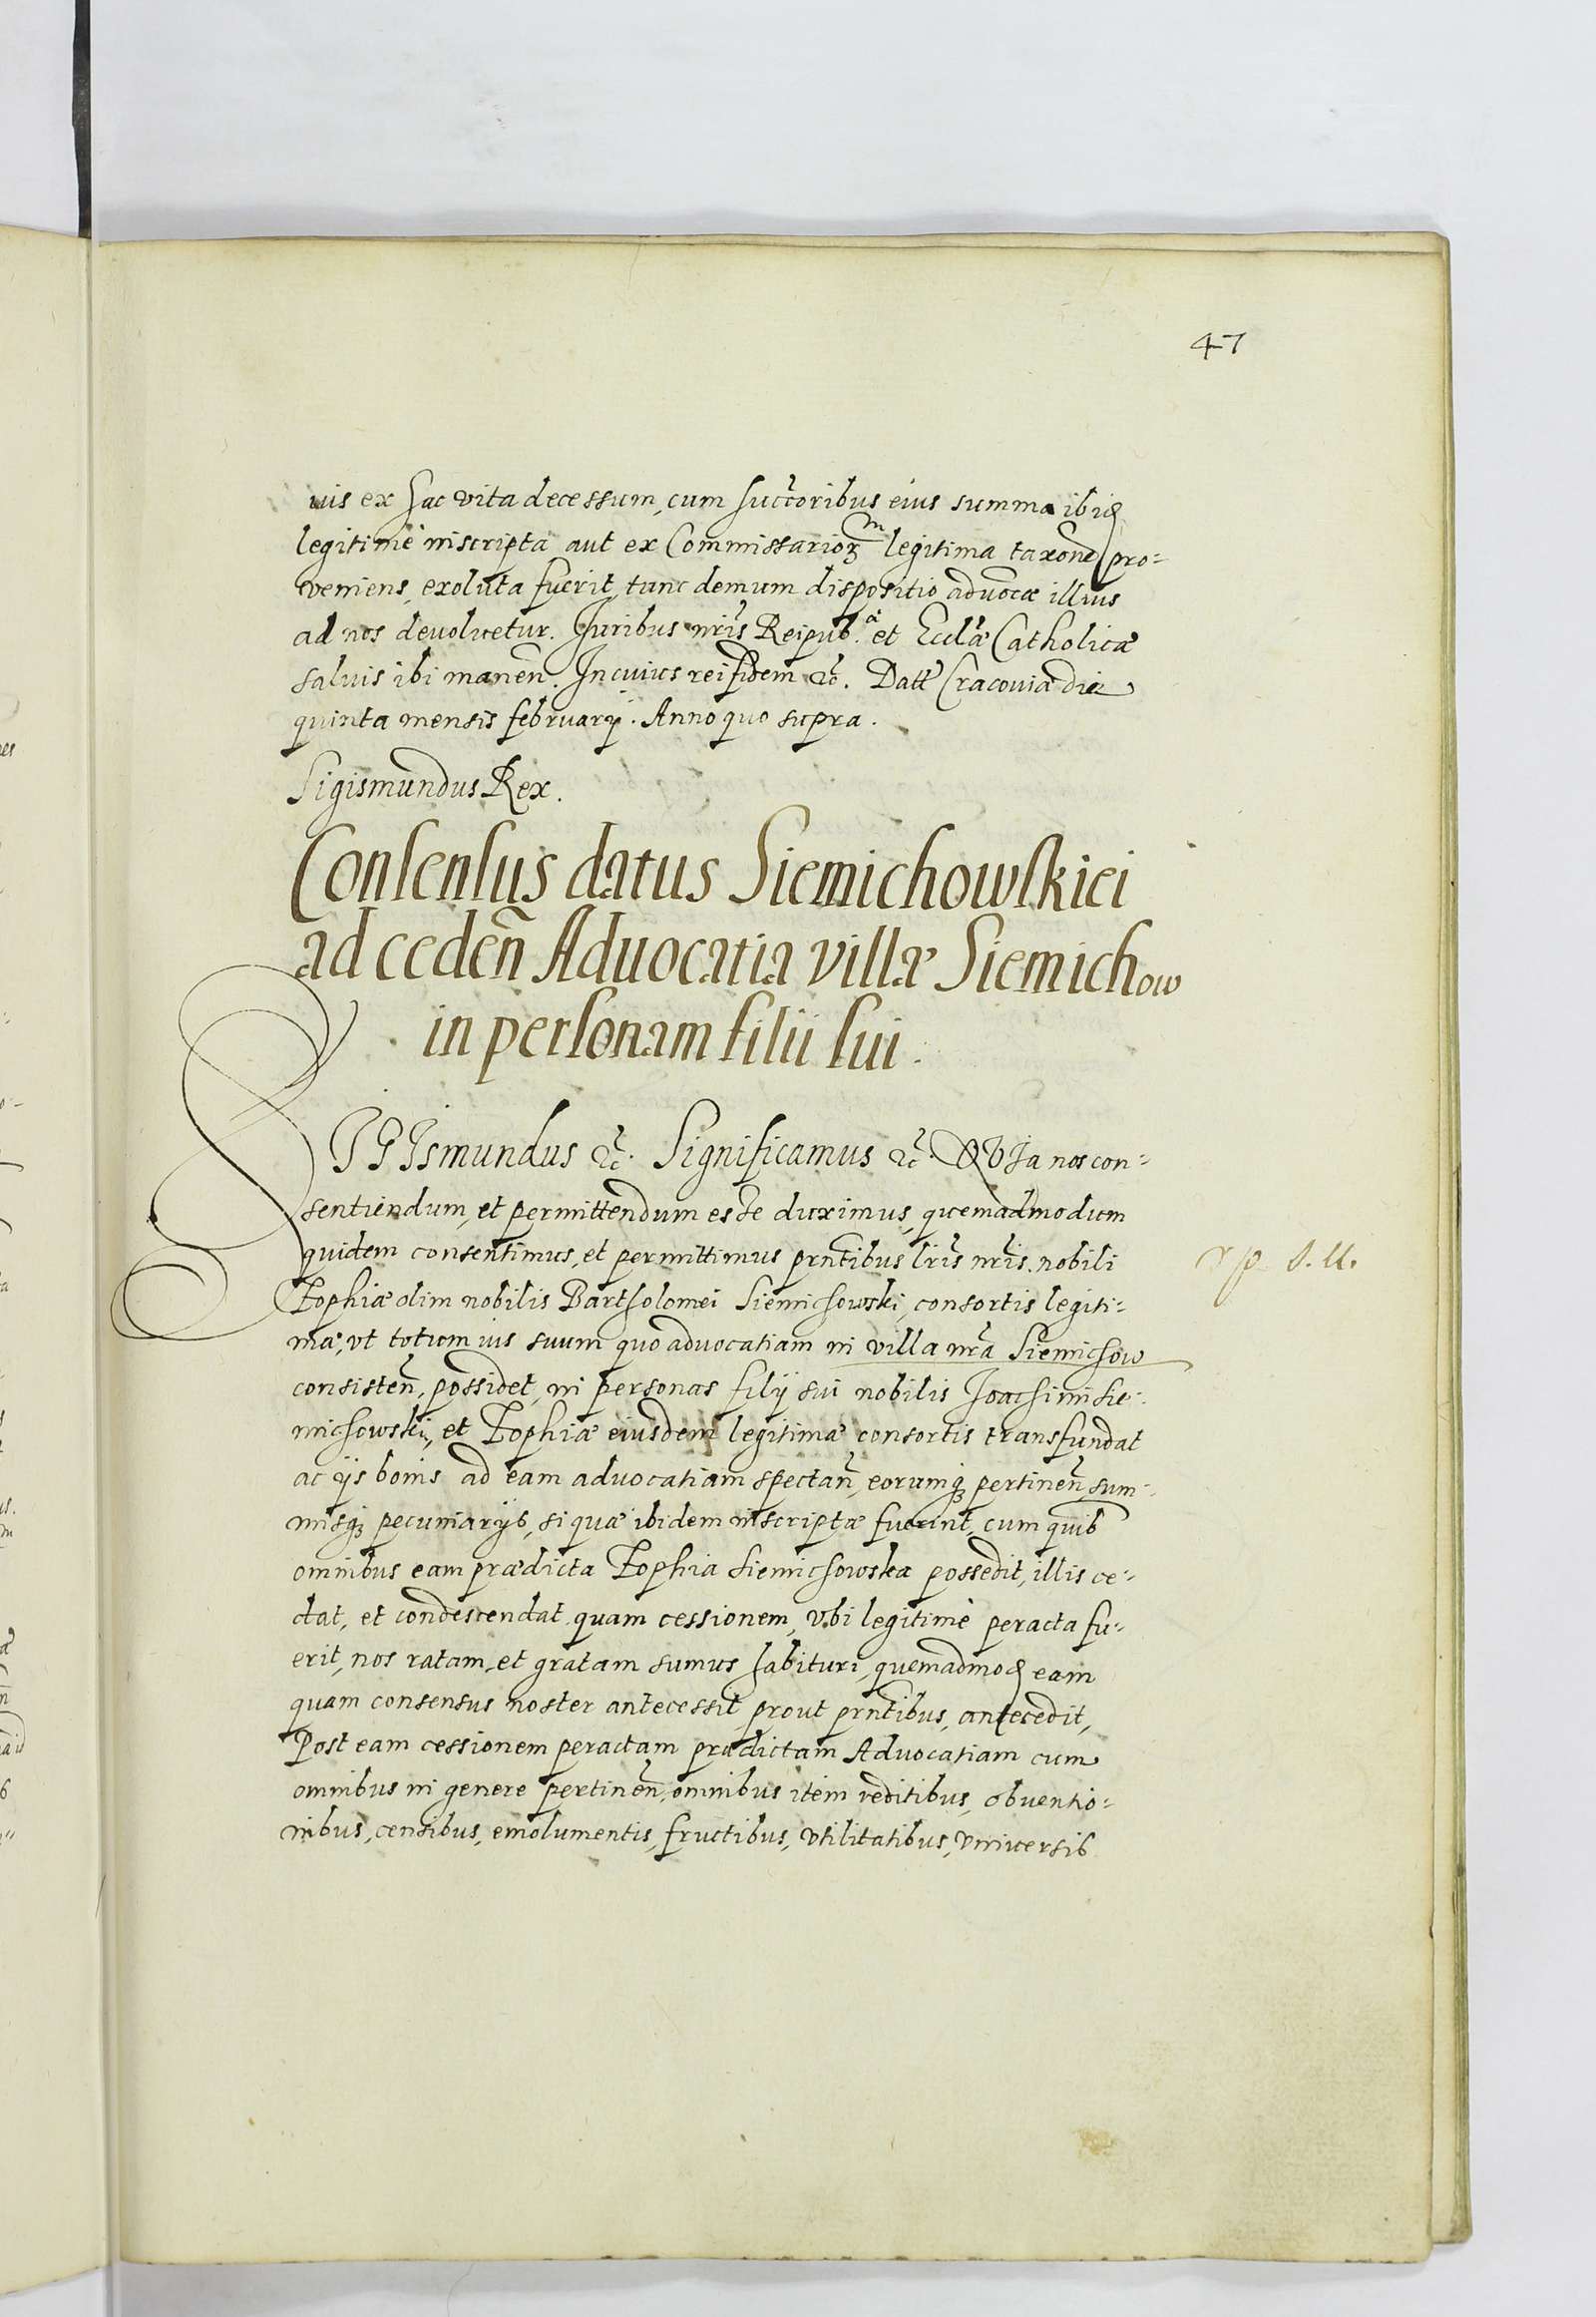 47
uis ex hac vita decessum, cum succ̃oribus eius summa ibid
legitimè inscripta aut ex Commissarioꝝ m legitima taxone pro-
veniens, exoluta fuerit, tunc demum dispositio advocæ illius
ad nos devolvetur. Iuribus nr̃is Reipub.æ et Eccl̃æ Catholicæ
salvis ibi manen̄. In cuius rei fidem ꝛc̃. Datt Cracoviæ die
quinta mensis february. Anno quo supra.
Sigismundus Rex.
Consensus datus Siemichowskiei
ad ceden̄ Advocatia villæ Siemichow
in personam filii sui.
SIGIsmundus ꝛc̃. Significamus ꝛc̃. QVIa nos con-
sentiendum, et permittendum esse duximus, quemadmodum
quidem consentimus, et permittimus prñtibus lr̃is nr̃is. nobili
Zophiæ olim nobilis Bartholomei Siemichowski, consortis legiti-
mæ, vt totum ius suum quo advocatiam in villa nr̃a Siemichow
consisten̄, possidet, in personas filij sui nobilis Ioachimi Sie-
michowski, et Zophiæ eiusdem legitimæ consortis transfundat
ac ijs bonis ad eam advocatiam spectan̄, eorumqꝫ pertinen̄ sum-
misqꝫ pecuniarijs, si quæ ibidem inscriptæ fuerint, cum quib
omnibus eam prædicta Zophia Siemichowska possedit, illis ce-
dat, et condescendat quam cessionem, vbi legitimè peracta fu-
erit, nos ratam, et gratam sumus habituri, quemadmod eam
quam consensus noster antecessit, prout prñtibus, antecedit,
Post eam cessionem peractam prædictam Advocatiam cum
omnibus in genere pertinen̄, omnibus item reditibus, obventio-
nibus, censibus, emolumentis, fructibus, vtilitatibus, vniversis